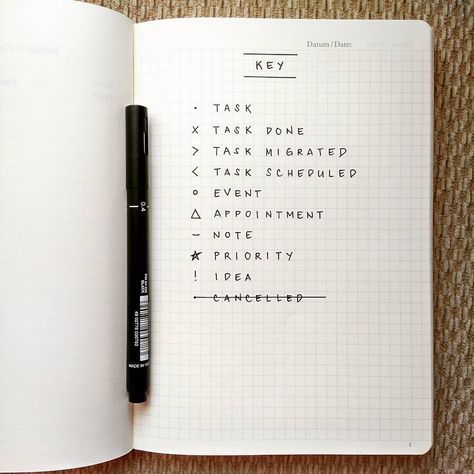 Datum / Date:
KEY
• TASK
x TASK DONE
> TASK MIGRATED
< TASK SCHEDULED
o EVENT
△ APPOINTMENT
– NOTE
☆ PRIORITY
! IDEA
• CANCELLED
0.4
BLACK
1